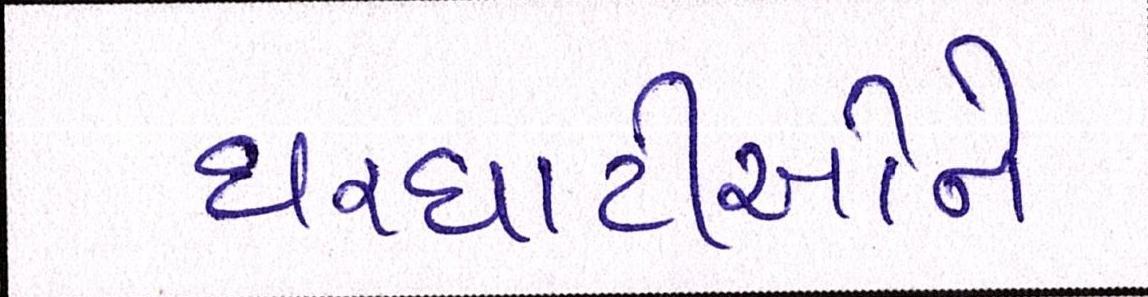 ઘરઘાટીઓને